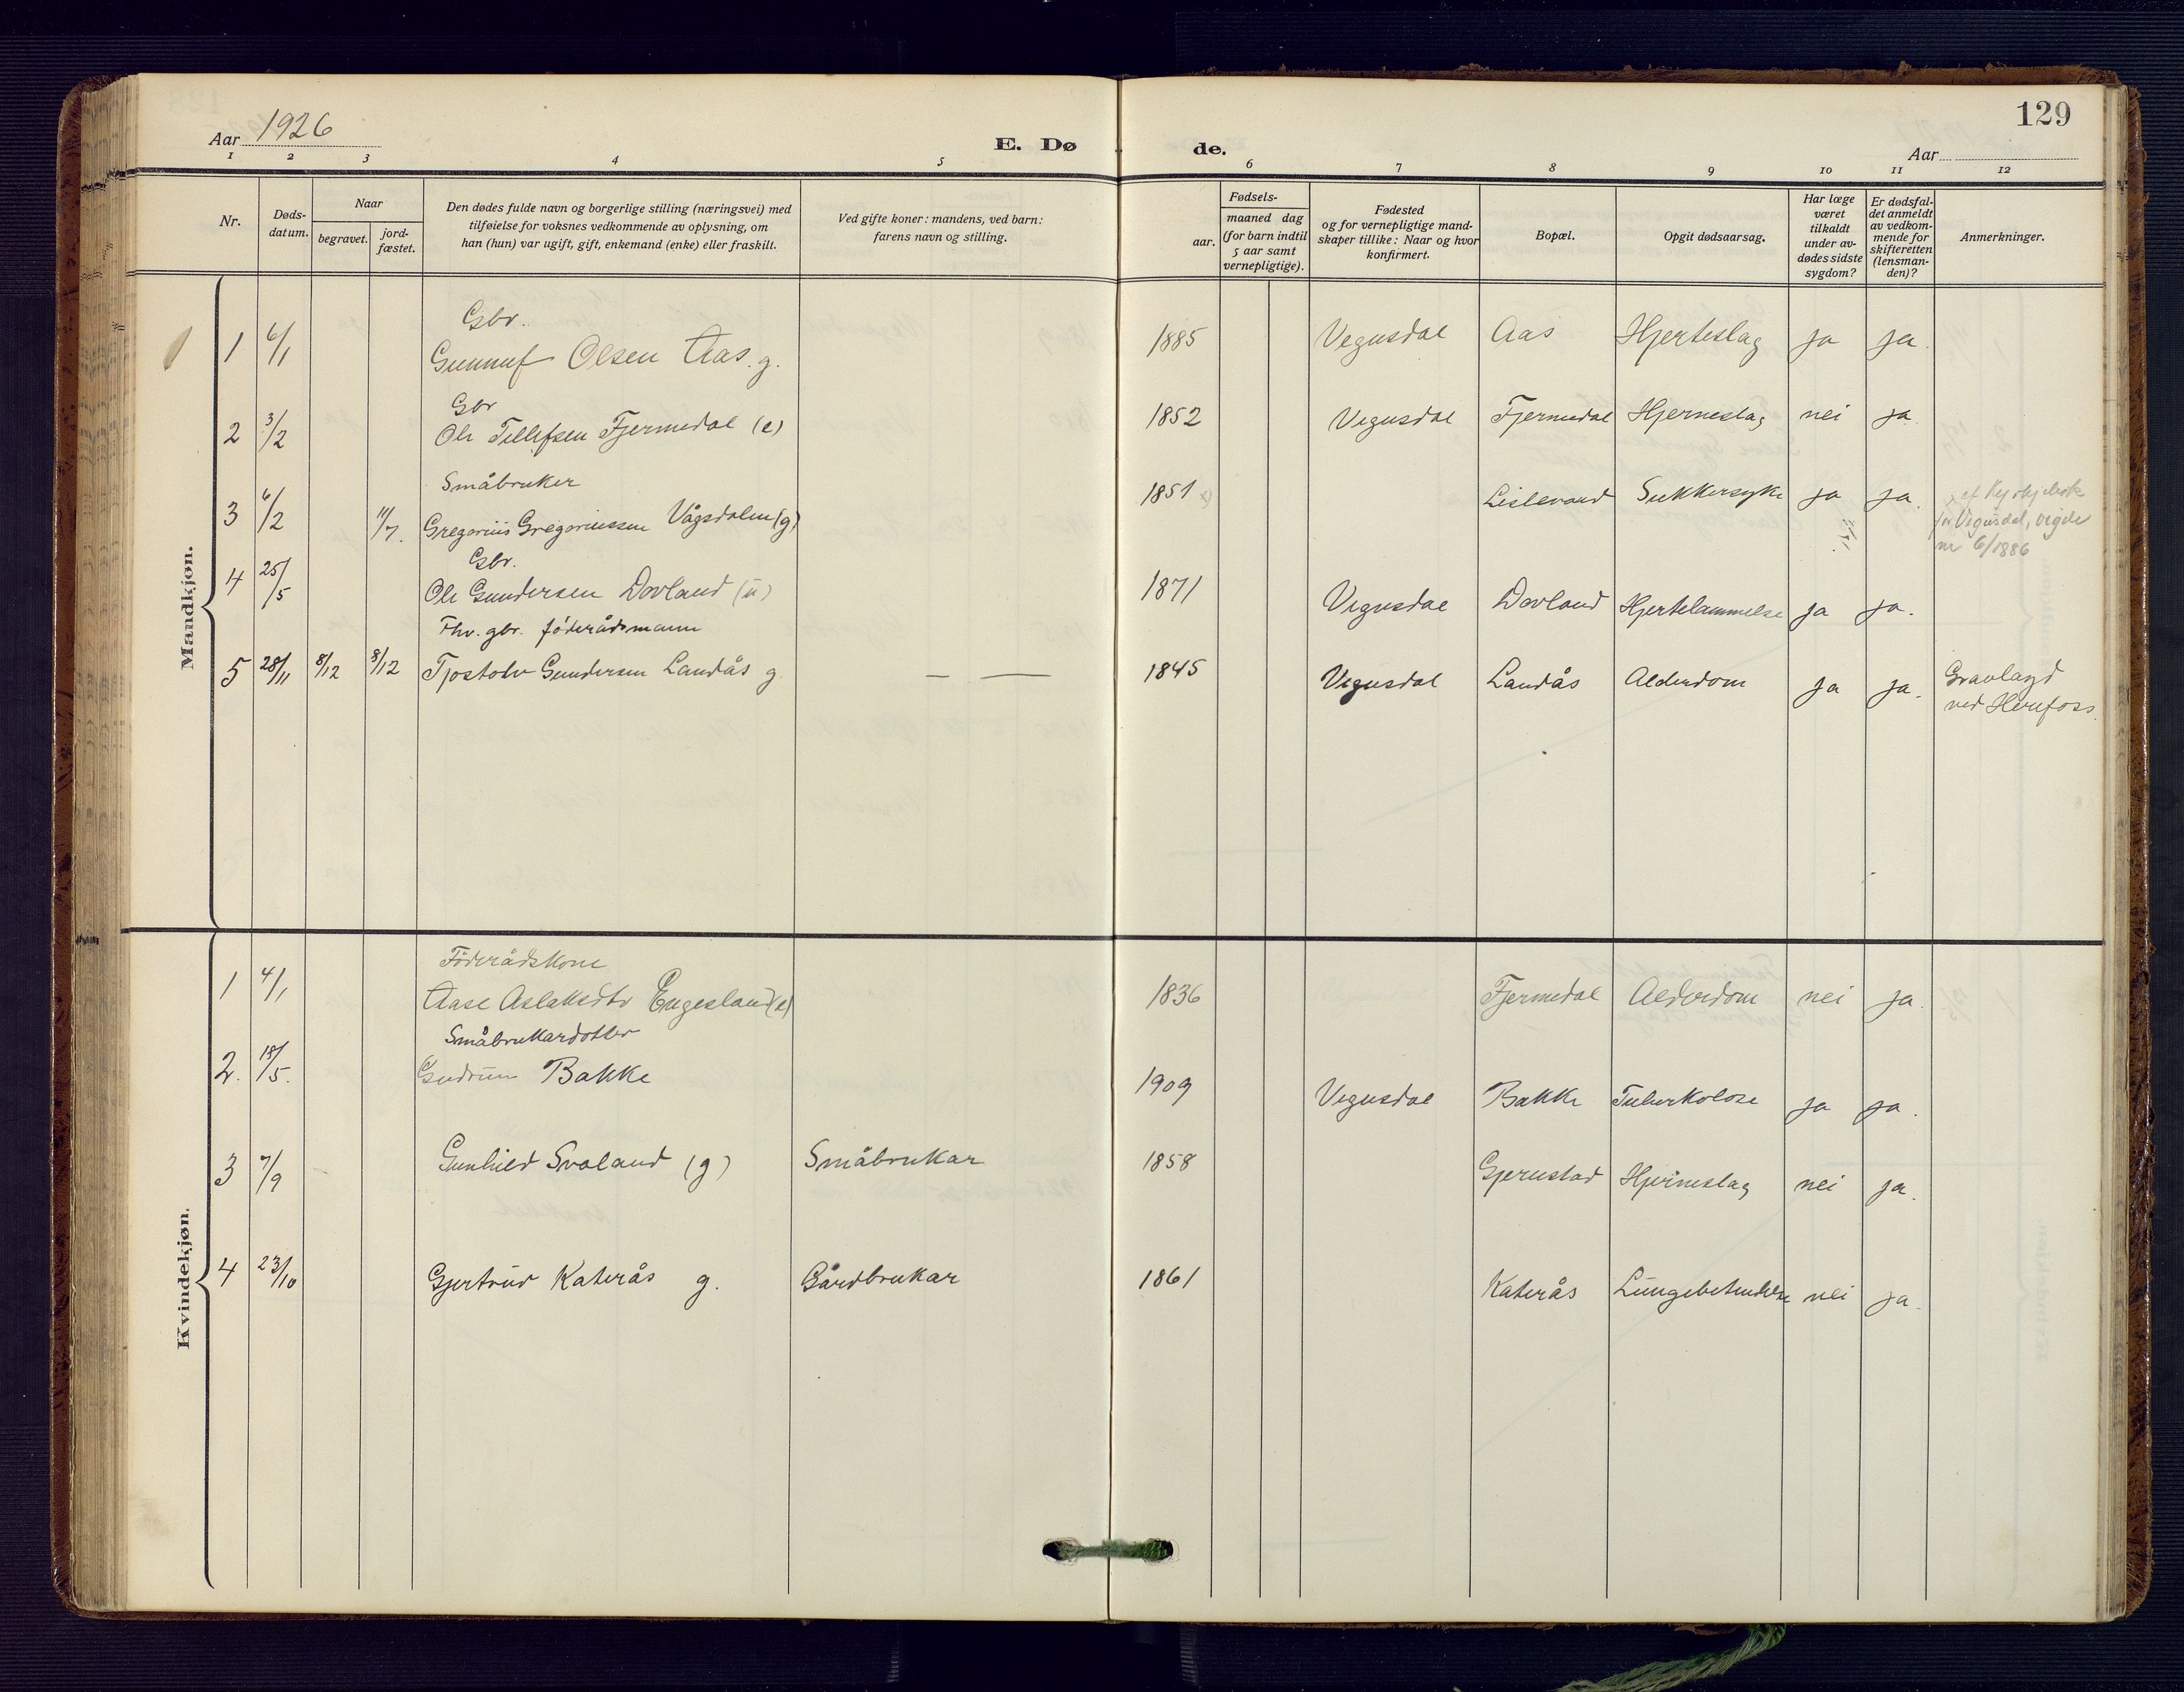 129
Aar 1926
E. Dø de.
Aar
1 2 3 4 5 6 7 8 9 10 11 12
Nr.
Døds-
datum.
Naar
begravet.
jord-
fæstet.
Den dødes fulde navn og borgerlige stilling (næringsvei) med
tilføielse for voksnes vedkommende av oplysning, om
han (hun) var ugift, gift, enkemand (enke) eller fraskilt.
Ved gifte koner: mandens, ved barn:
farens navn og stilling.
Fødsels-
aar.
maaned dag
(for barn indtil
5 aar samt
vernepligtige).
Fødested
og for vernepligtige mand-
skaper tillike: Naar og hvor
konfirmert.
Bopæl.
Opgit dødsaarsag.
Har læge
været
tilkaldt
under av-
dødes sidste
sygdom?
Er dødsfal-
det anmeldt
av vedkom-
mende for
skifteretten
(lensman-
den)?
Anmerkninger.
Mandkjøn.
Gbr.
1 6/1 Gunnuf Olsen Aas. g. 1885 Vegusdal Aas Hjerteslag ja ja.
Gbr
2 3/2 Ole Tellefsen Fjermedal (e) 1852 Vegusdal Fjermedal Hjerneslag nei ja
Småbruker
3 6/2 11/7. Gregorius Gregoriussen Vågsdalen (g) 1851 Lislevand Sukkersyke ja ja.
for Vegusdal, vigde
nr 6/1886
Gbr.
4 25/5 Ole Gundersen Dovland (u) 1871 Vegusdal Dovland Hjertelammelse ja ja.
Fhv. gbr. föderådsmann
5 28/11 8/12 8/12 Tjostolv Gundersen Landås g. — — 1845 Vegusdal Landås Alderdom ja ja. Gravlagd
ved Herefoss.
Kvindekjøn.
Föderådskone
1 4/1 Aase Aslaksdtr Engesland (e) 1836 Fjermedal Alderdom nei ja.
Småbrukardotter
2. 18/5. Gudrun Bakke 1909 Vegusdal Bakke Tuberkolose ja ja.
3 7/9 Gunhild Svaland (g) Småbrukar 1858 Gjerustad Hjerneslag nei ja.
4 23/10 Gjertrud Katerås g. Gårdbrukar 1861 Katerås Lungebetendelse nei ja.